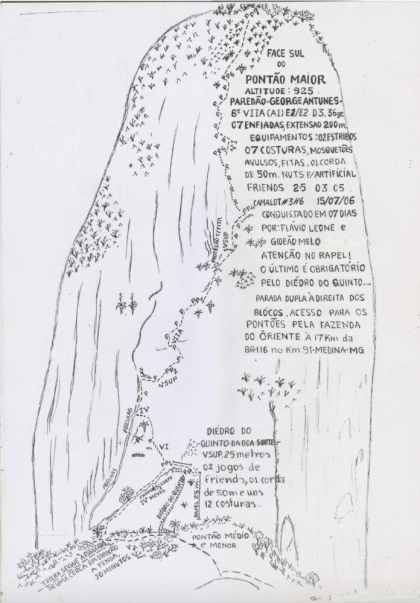 CUME LE
FACE SUL
DO
PONTÃO MAIOR
ALTITUDE: 925
PAREDÃO-GEORGE ANTUNES-
6º VIIA (A1) E2/E2 D3, 36gr
07 ENFIADAS, EXTENSÃO 200m
EQUIPAMENTOS: 02 ESTRIBOS
07 COSTURAS, MOSQUETÕES
AVULSOS, FITAS, 01 CORDA
DE 50m. NUTS P/ARTIFICIAL
FRIENDS 2.5 03 05
CAMALOT #3#6 15/07/06
CONQUISTADO EM 07 DIAS
POR: FLÁVIO LEONE e
GIDEÃO MELO
ATENÇÃO NO RAPEL!
O ÚLTIMO É OBRIGATÓRIO
PELO DIÉDRO DO QUINTO...
PARADA DUPLA À DIREITA DOS
BLOCOS. ACESSO PARA OS
PONTÕES PELA FAZENDA
DO ORIENTE À 17Km da
BR116 no Km 91-MEDINA-MG
VI
VSUP
PP5
VIIA
VSUP
IV
VI
DIÉDRO DO
QUINTO-DA-BOA-SORTE-
VSUP, 25 metros
02 jogos de
friends, 01 corda
de 50m e uns
12 costuras.
PONTÃO MÉDIO
e MENOR
TRILHA SEGUE A ESQUERDA
DE UMA CERCA EM DIREÇÃO
A FENDA,
20 MINUTOS